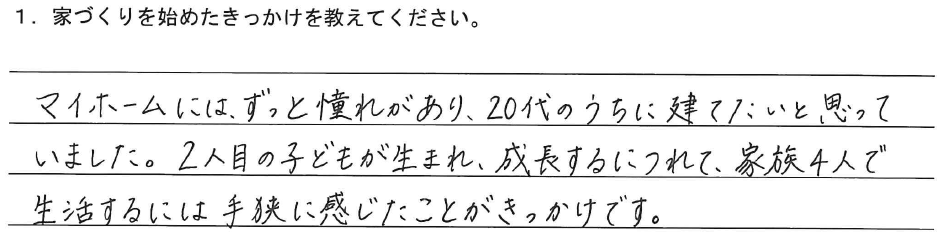 1. 家づくりを始めたきっかけを教えてください。
マイホームには、ずっと憧れがあり、20代のうちに建てたいと思って
いました。2人目の子どもが生まれ、成長するにつれて、家族4人で
生活するには手狭に感じたことがきっかけです。